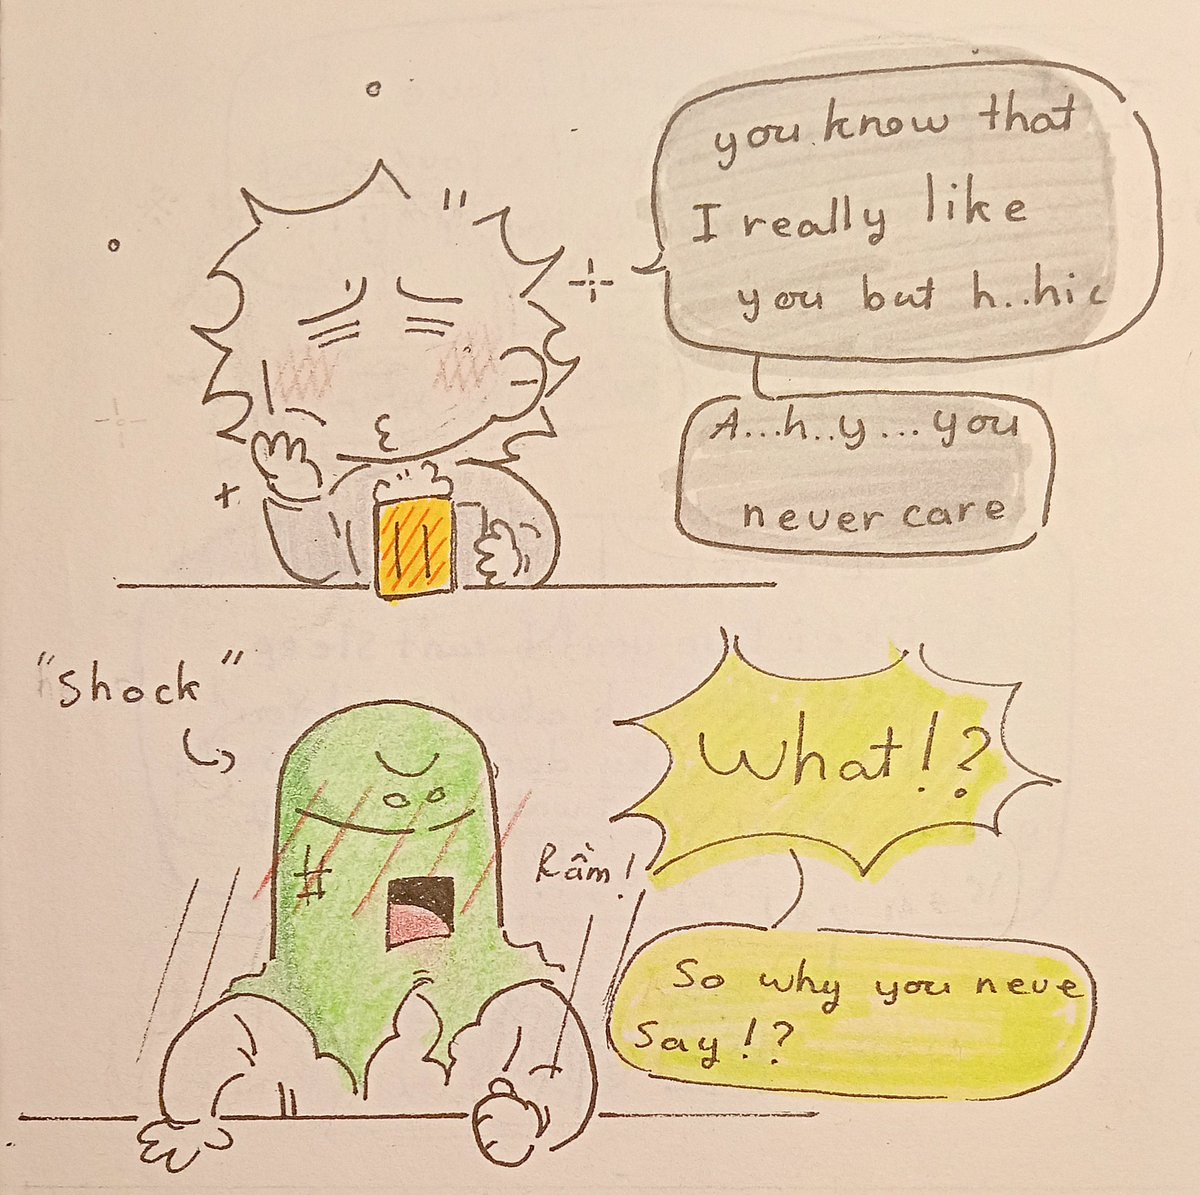 you know that
I really like
you but h..hic
A...h..y...you
never care
"shock"
What!?
Rầm!
So why you neve
Say!?